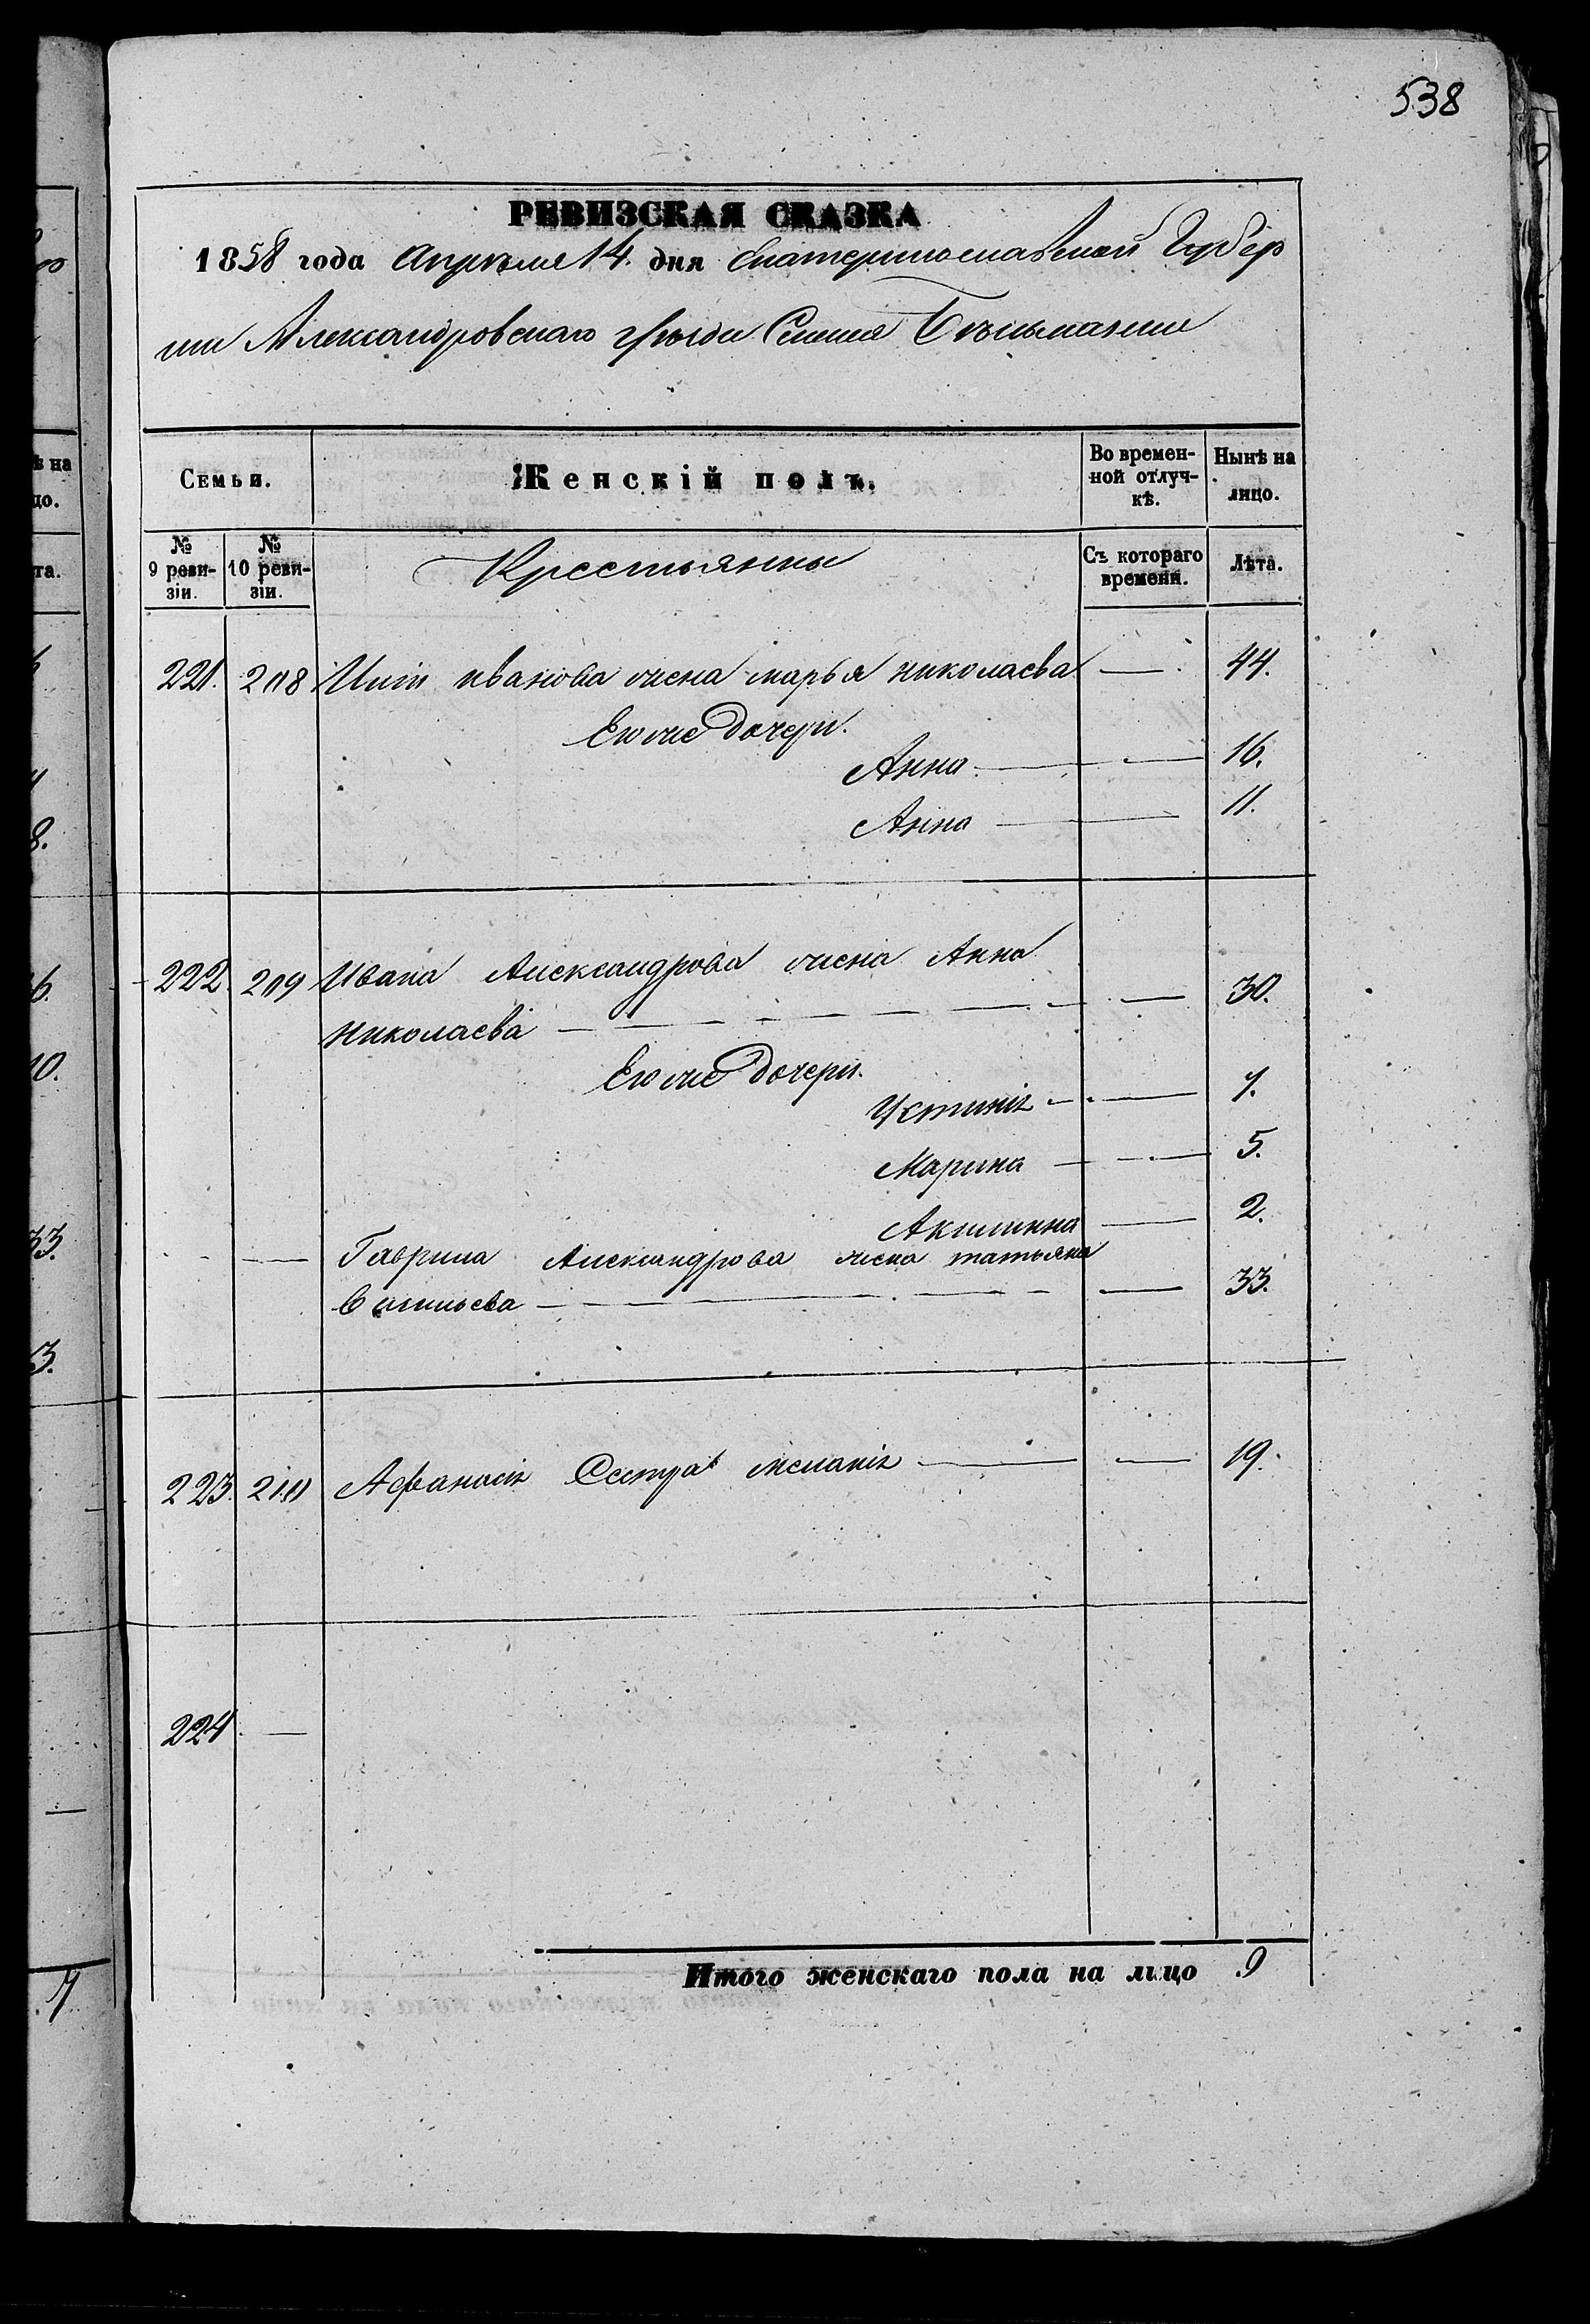 538
РЕВИЗСКАЯ СКАЗКА
1858 года Апреля 14. дня Екатеринославской Губер
нии Александровскаго уезда Селения
Семьи.
Женскій полъ.
Во времен-
ной отлуч-
кѣ.
Нынѣ на
лицо.
№
9 реви-
зіи.
№
10 реви-
зіи.
Крестьянки
Съ котораго
времени.
Лѣта.
221. 208 иванова жена марья николаева — 44.
Его же дочери.
Анна — 16.
Анна — 11.
222. 209 Ивана Александрова жена Анна
николаева — 30.
Его же дочери.
Устинія — 7.
Марина — 5.
Акилинна — 2.
— Гаврила Александрова жена татьяна
Васильева — 33.
223. 210 Афанасія Сестра меланія — 19.
224 —
Итого женскаго пола на лицо 9
ѣ на
цо.
та.
8.
6.
10.
33.
3.
—
7